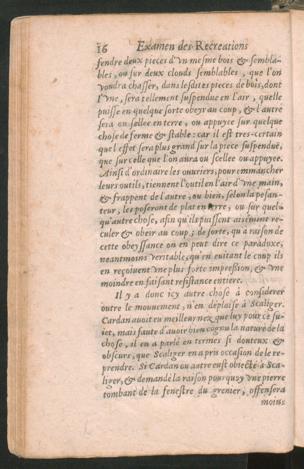 16 Examen des Recreations
fendre deux pieces d'vn mesme bois & sembla-
bles, ou sur deux clouds semblables, que l'on
voudra chasser, dans lesdites pieces de bois, dont
l'vne, sera tellement suspendue en l'air, quelle
puisse en quelque sorte obeyr au coup, & l'autre
sera ou sellee en terre, ou appuyee sur quelque
chose de ferme & stable: car il est tres-certain
que l'effet sera plus grand sur la piece suspendue,
que sur celle que l'on aura ou scellee ou appuyee.
Ainsi d'ordinaire les ouuriers, pour emmancher
leurs outils, tiennent l'outil en l'air d'vne main,
& frappent de l'autre, ou bien, selon la pesan-
teur, les poseront de plat en terre, ou sur quel-
qu'autre chose, afin qu'ils puissent aisément re-
culer & obeir au coup; de sorte, qu'à raison de
cette obeyssance on en peut dire ce paradoxe,
neantmoins veritable, qu'en euitant le coup ils
en reçoiuent vne plus forte impression, & vne
moindre en faisant resistance entiere.
Il y a donc icy autre chose à considerer
outre le mouuement, n'en déplaise à Scaliger.
Cardan auoit eu meilleur nez que luy pour ce su-
iet, mais faute d'auoir bien cognu la nature de la
chose, il en a parlé en termes si douteux &
obscurs, que Scaliger en a pris occasion de le re-
prendre. Si Cardan ou autre eust obiecté à Sca-
liger, & demandé la raison pourquoy vne pierre
tombant de la fenestre du grenier, offensera
moins